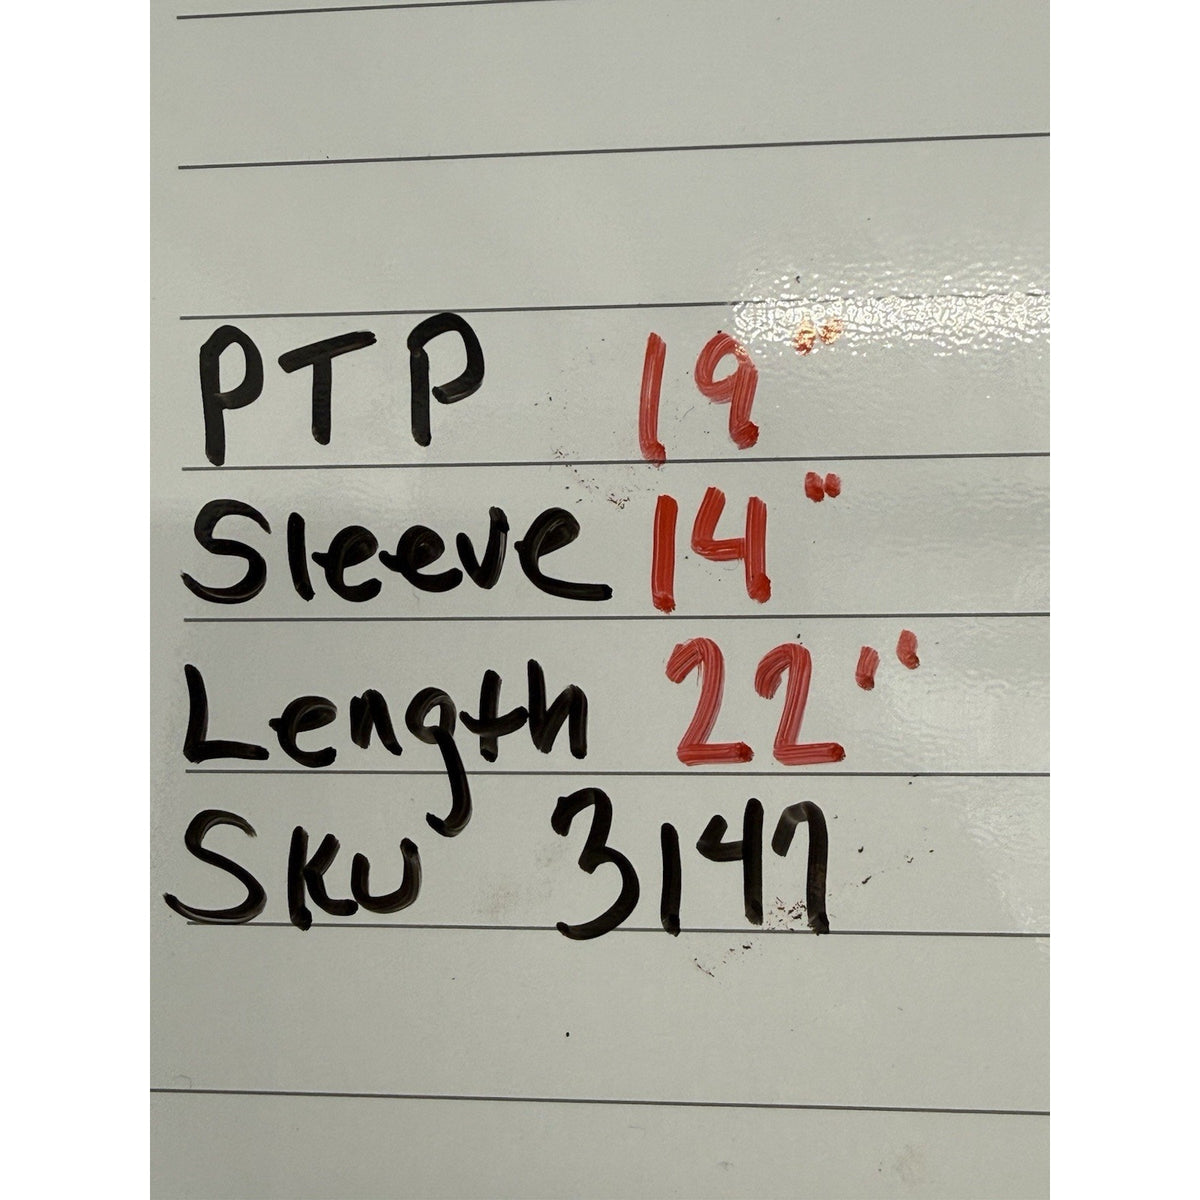 PTP 19"
Sleeve 14"
Length 22"
SKU 3147